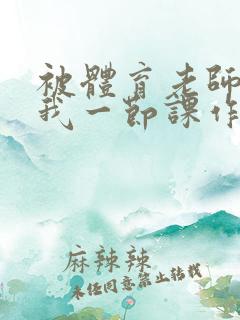 被體育老師
我一節課作
麻辣辣
未经同意禁止转载